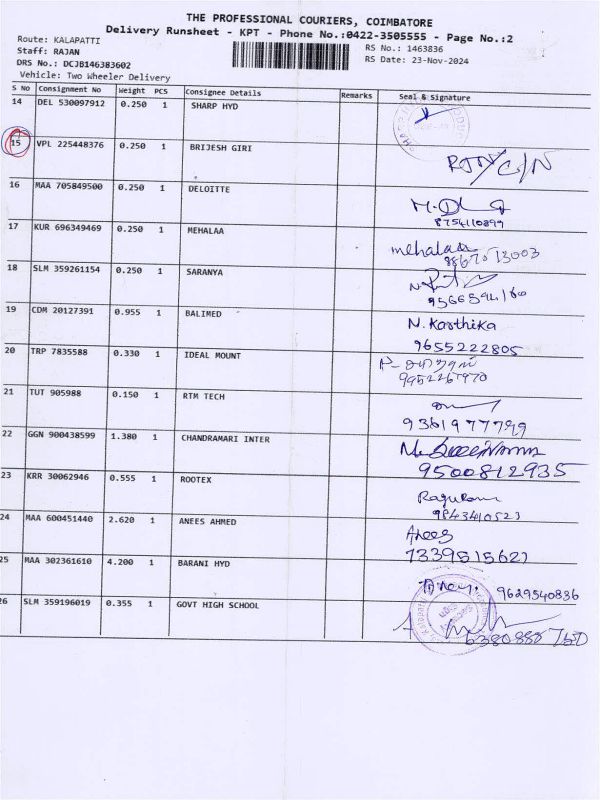 THE PROFESSIONAL COURIERS, COIMBATORE
Delivery Runsheet - KPT - Phone No.:0422-3505555 - Page No.:2
Route: KALAPATTI
RS No.: 1463836
Staff: RAJAN
RS Date: 23-Nov-2024
DRS No.: DCJB146383602
Vehicle: Two Wheeler Delivery
S No Consignment No Weight PCS Consignee Details Remarks Seal & Signature
14 DEL 530097912 0.250 1 SHARP HYD
15 VPL 225448376 0.250 1 BRIJESH GIRI
16 MAA 705849500 0.250 1 DELOITTE
8754110899
17 KUR 696349469 0.250 1 MEHALAA
mehalaa
18 SLM 359261154 0.250 1 SARANYA
19 CDM 20127391 0.955 1 BALIMED N. Karthika
9655222805
20 TRP 7835588 0.330 1 IDEAL MOUNT
9952267970
21 TUT 905988 0.150 1 RTM TECH
9361977799
22 GGN 900438599 1.380 1 CHANDRAMARI INTER
9500812935
23 KRR 30062946 0.555 1 ROOTEX
9843410523
24 MAA 600451440 2.620 1 ANEES AHMED Anees
7339515621
25 MAA 302361610 4.200 1 BARANI HYD
9629540836
26 SLM 359196019 0.355 1 GOVT HIGH SCHOOL